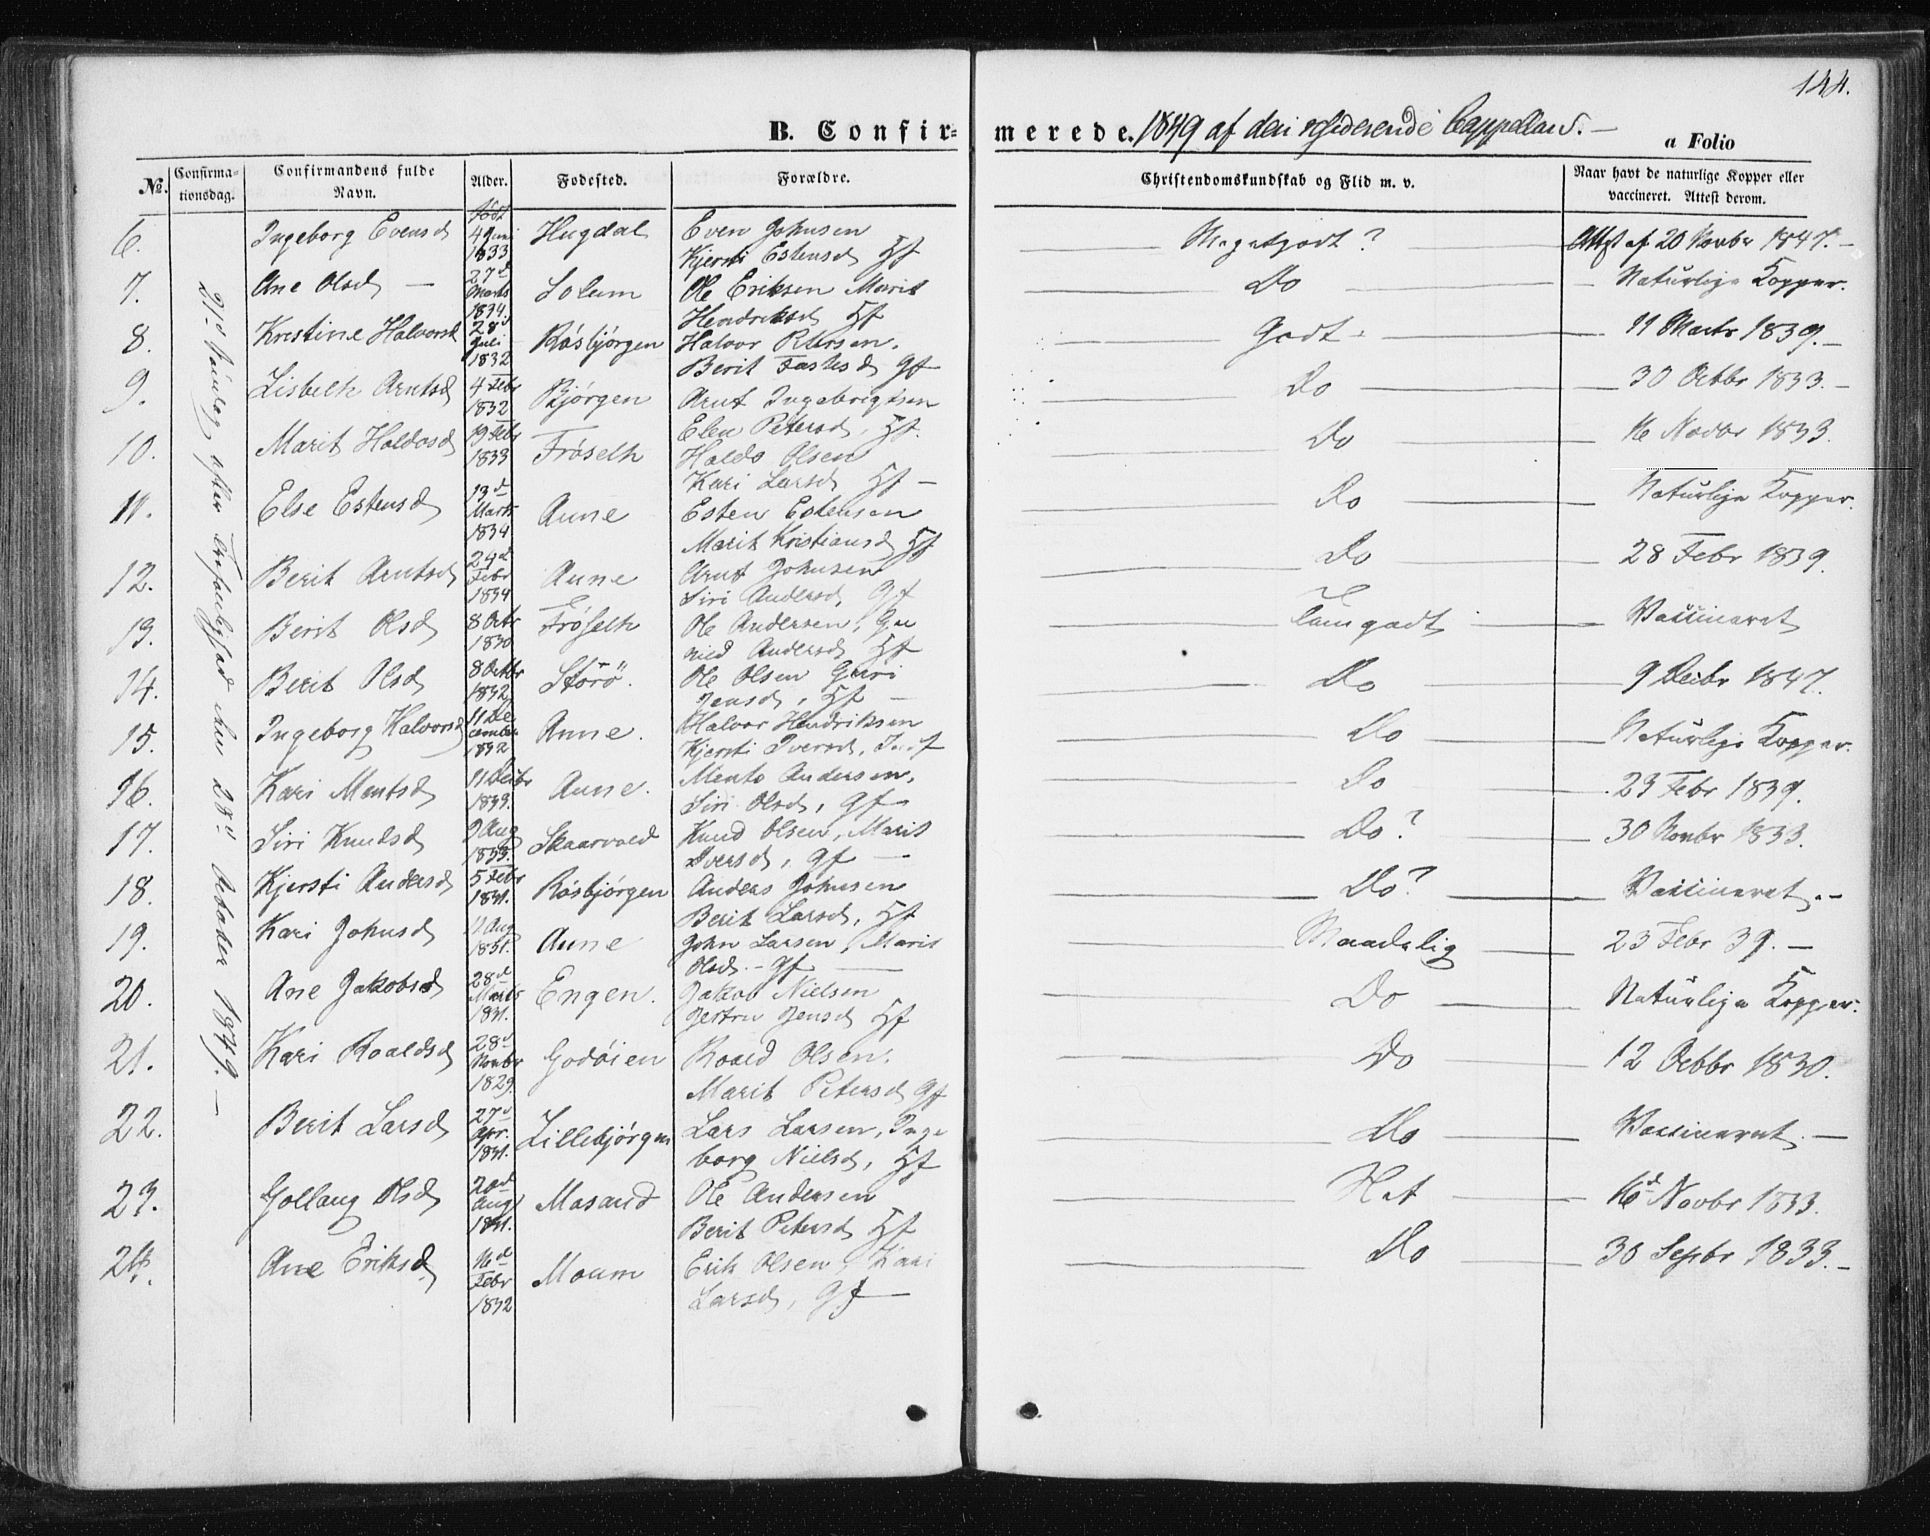 144.
B. Confirmerede. 1849 af den residerende Cappellan. —
a Folio
№. Confirmationsdag. Confirmandens fulde Navn. Alder. Fodested. Forældre. Christendomskundskab og Flid m. v. Naar havt de naturlige Kopper eller vaccineret. Attest derom.
21d Søndag efter Trefoldighed den 28d October 1849. —
6. Ingeborg Evensd født 4 Juni 1833 Hugdal Even Johnsen Kjersti Estensd Hf Megetgodt? Attst af 20 Novbr 1847. —
7. Ane Olsd — 27d Marts 1834. Solum Ole Eriksen Marit Hendriksd Hf Do Naturlige Kopper.
8. Kristine Halvorsd 28d Juli 1832 Røsbjørgen Halvor Petersen. Berit Fastesd Gf Godt 11 Marts 1839. —
9. Lisbeth Arntsd 4 Febr 1832 Bjørgen Arnt Ingebrigtsen Elen Petersd, Hf. Do 30 Octbr 1833. —
10. Marit Haldosd 19 Febr 1833 Frøseth Haldo Olsen Kari Larsd Hf — Do 16 Novbr 1833.
11. Else Estensd 13d Marts 1834 Aune Esten Estensen Marit Kristiansd Hf Do Naturlige Kopper.
12. Berit Arntsd 24d Febr 1834 Aune Arnt Johnsen Siri Andersd, Gf Do 28 Febr 1839.
13. Berit Olsd 8 Octr 1830 Frøseth Ole Andersen, Gunild Andersd Hf Tamgodt Vaccineret
14. Berit Olsd 8 Octbr 1832 Störö. Ole Olsen Guri Jensd, Hf — Do 9 Decbr 1847.
15. Ingeborg Halvorsd 11 December 1832 Aune. Halvor Hendriksen Kjersti Iversd, Indf Do Naturlige Kopper.
16. Kari Mentsd 11 Decbr 1833. Aune. Mento Andersen, Siri Olsd, Gf Do 23 Febr 1839.
17. Siri Knudsd 9 Aug 1833. Skaarvold Knud Olsen, Marit Iversd, Gf — Do? 30 Novbr 1833.
18. Kjersti Andersd 5 Febr 1831. Røsbjørgen Anders Johnsen Berit Larsd, Hf Do? Vaccineret. —
19. Kari Johnsd 11 Aug 1831. Aune John Larsen, Marit Olsd. — Gf — Maadelig 23 Febr 39. —
20. Ane Jakobsd 28d Marts 1831. Engen. Jakob Nielsen Jertru Jensd Hf Do Naturlige Kopper.
21. Kari Roaldsd 28d Novbr 1829. Godøien Roald Olsen. Marit Petersd Gf Do 12 Octbr 1830.
22. Berit Larsd 27d Apr. 1831. Lillebjørgen Lars Larsen, Ingeborg Nielsd, Hf Do Vaccineret. —
23. Gollaug Olsd 20d Aug 1831. Mosand Ole Andersen Berit Petersd Hf Slet 16d Novbr 1833.
24. Ane Eriksd 16d Febr 1832 Moum Erik Olsen, Kari Larsd, Gf — Do 30 Sepbr 1833. —